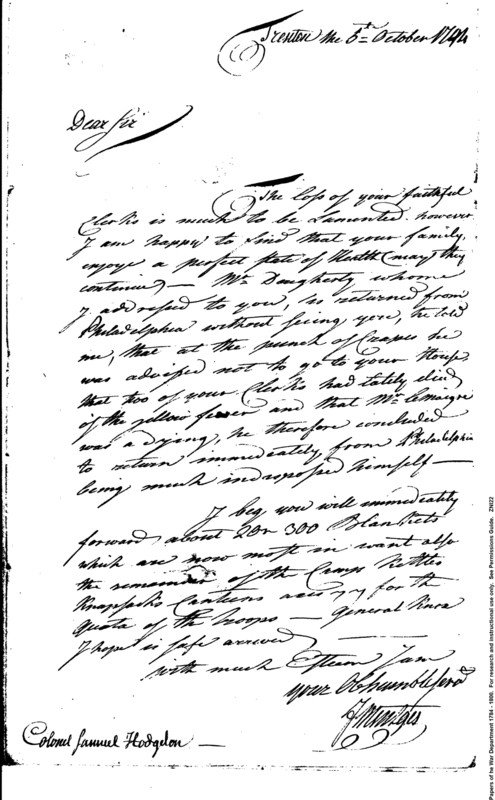 Trenton the 5th October 1794
Dear Sir
The loss of your faithful
Clerks is much to be Lamented. however
I am happy to find that your family,
enjoye a perfect State of Health (may they
continue) — Mr Daugherty whome
I addressed to you, is returned from
Philadelphia without seeing yore, he told
me, that at the punch of Crapes he
was advised not to go to your House
that two of your Clerks had lately died
of the yellow fewer and that Mr Lemaigre
was a dyang, he therefore concluded
to return immediately from Philadelphia
being much indropossed himself —
I beg you will immediately
forward about 2 or 300 Blankets
which are now most in want also
the remainder of the Camp Kettles
Knapsacks Canteens axes for the
quota of the troops — General Knox
I hope is safe arrived —
with much Esteem I am
your Ob humble Serv
Colonel Samuel Hodgdon —
Papers of he War Department 1784 - 1800. For research and instructional use only. See Permissions Guide. ZNI22